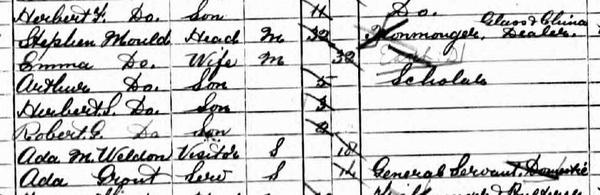 Herbert F. Do. Son 11 Do.
Stephen Mould Head M 32 Ironmonger, Glass & China Dealer.
Emma Do. Wife M 32
Arthur Do. Son 5 Scholar
Herbert S. Do. Son 3
Robert G. Do Son 2
Ada M. Weldon Visitor S 18
Ada Grout Serv S 14 General Servant, Domestic